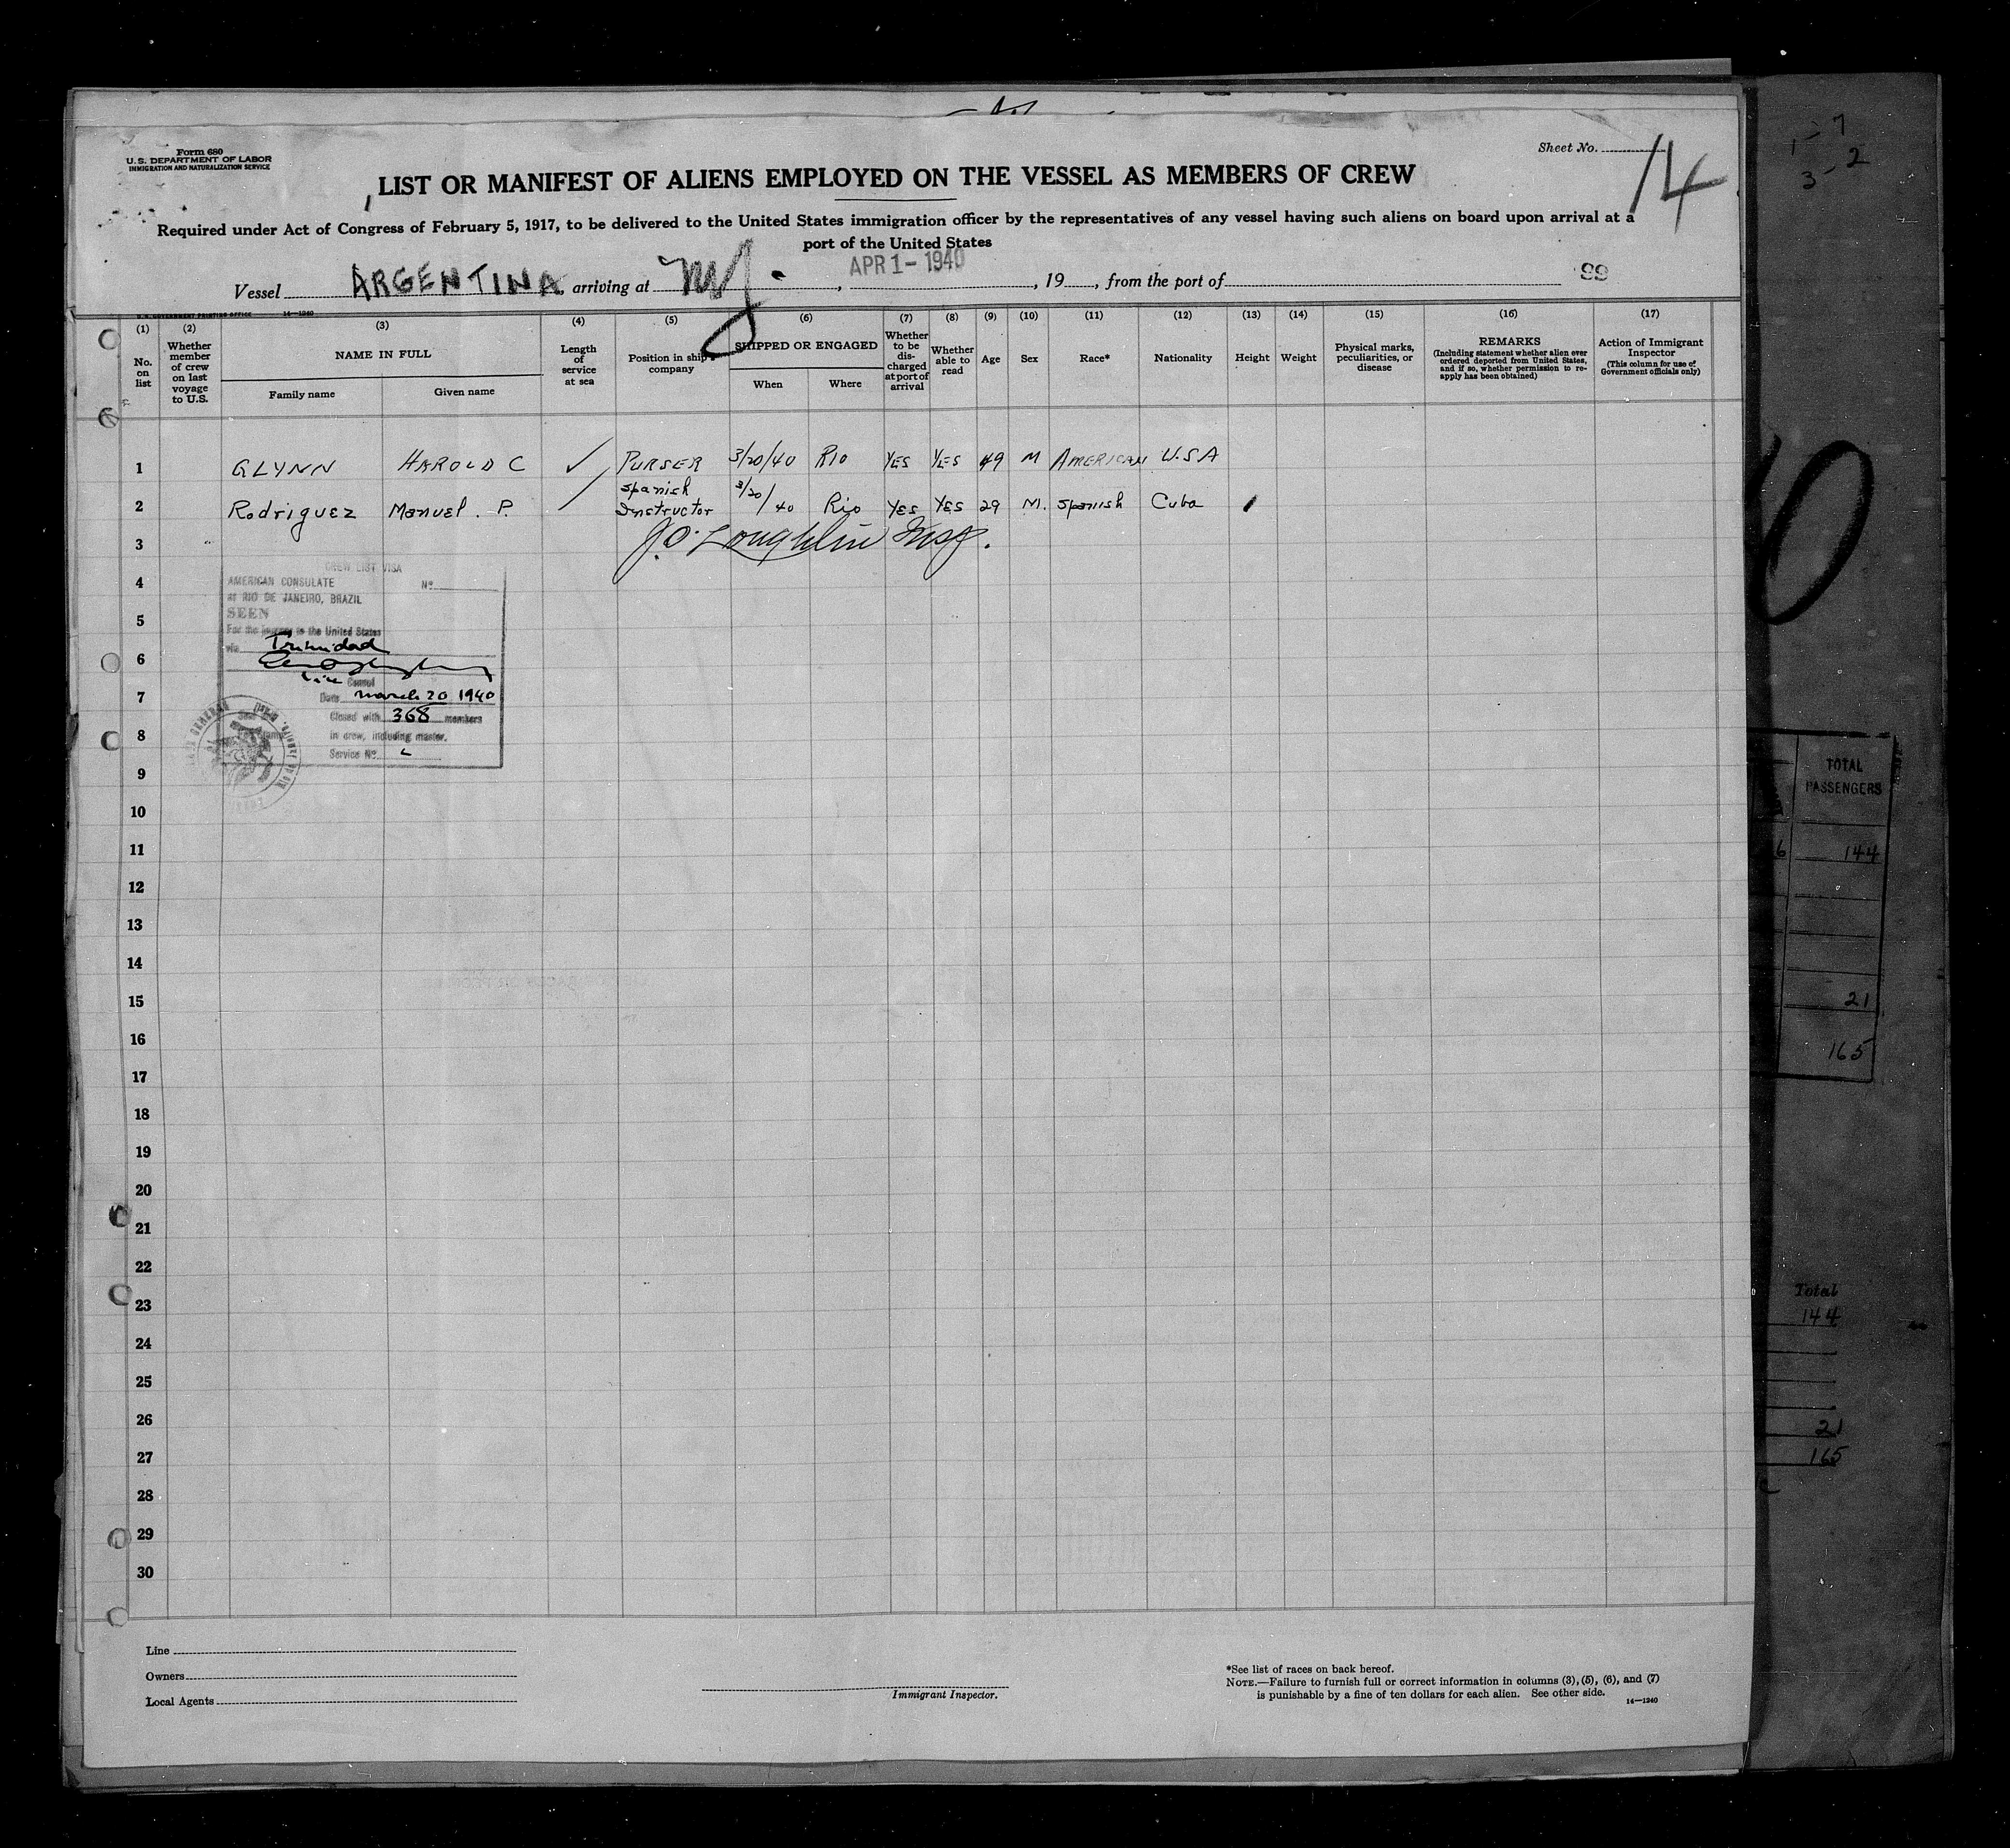 Form 680
U.S. DEPARTMENT OF LABOR
IMMIGRATION AND NATURALIZATION SERVICE
Sheet No. 14
LIST OR MANIFEST OF ALIENS EMPLOYED ON THE VESSEL AS MEMBERS OF CREW
Required under Act of Congress of February 5, 1917, to be delivered to the United States immigration officer by the representatives of any vessel having such aliens on board upon arrival at a
port of the United States
Vessel ARGENTINA, arriving at NY. , APR 1 - 1940 , 19 , from the port of 99
U.S. GOVERNMENT PRINTING OFFICE 14—1240
(1) (2) (3) (4) (5) (6) (7) (8) (9) (10) (11) (12) (13) (14) (15) (16) (17)
No. on list
Whether member of crew on last voyage to U.S.
NAME IN FULL
Family name
Given name
Length of service at sea
Position in ship's company
SHIPPED OR ENGAGED
When
Where
Whether to be discharged at port of arrival
Whether able to read
Age
Sex
Race*
Nationality
Height
Weight
Physical marks, peculiarities, or disease
REMARKS
(Including statement whether alien ever ordered deported from United States, and if so, whether permission to re-apply has been obtained)
Action of Immigrant Inspector
(This column for use of Government officials only)
1 GLYNN HAROLD C PURSER 3/20/40 RIO YES YES 49 M AMERICAN U.S.A
2 Rodriguez Manuel. P. Spanish Instructor 3/20/40 Rio Yes Yes 29 M. Spanish Cuba
3 J.O. Loughlin Insp.
4
5
6
7
8
9
10
11
12
13
14
15
16
17
18
19
20
21
22
23
24
25
26
27
28
29
30
CREW LIST VISA
AMERICAN CONSULATE No.
At RIO DE JANEIRO, BRAZIL
SEEN
For the journey to the United States
via Trinidad
Vice Consul
Date March 20 1940
Closed with 368 members
in crew, including master.
Service No.
Line
Owners
Local Agents
Immigrant Inspector.
*See list of races on back hereof.
NOTE.—Failure to furnish full or correct information in columns (3), (5), (6), and (7)
is punishable by a fine of ten dollars for each alien. See other side.
14—1240
1-7
3-2
0
TOTAL
PASSENGERS
6 144
21
165
Total
144
21
165